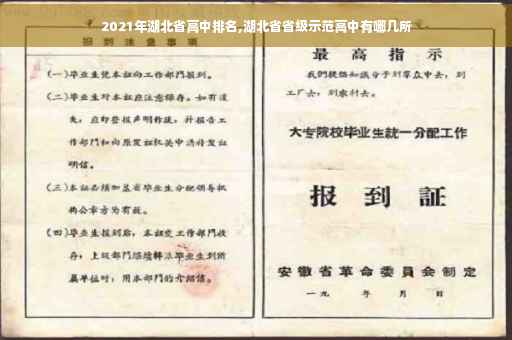 2021年湖北省高中排名,湖北省省级示范高中有哪几所
报到注意事项
(一)毕业生凭本证向工作部门报到。
(二)毕业生对本证应注意保存。如有遗
失,应即登报声明作废,并报告工
作部门和向原发证机关申请补发证
明信。
(三)本证必须加盖省毕业生分配领导机
构公章方为有效。
(四)毕业生报到后,本证交工作部门收
存;上级部门继续转派毕业生到所
属单位时,用本部门的介绍信。
最高指示
我们提倡知识分子到群众中去,到
工厂去,到农村去。
大专院校毕业生统一分配工作
报到証
安徽省革命委員会制定
一九 年 月 日